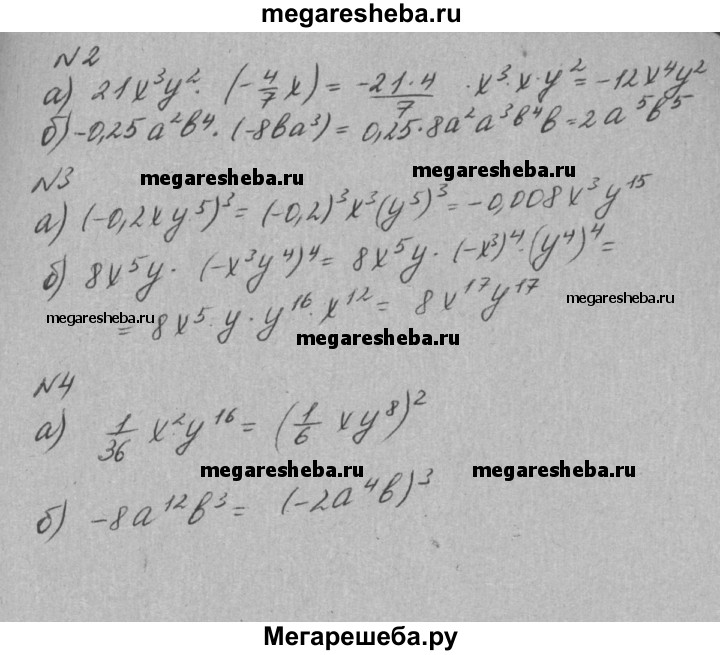 megaresheba.ru
N2
а) 21x³y² · (-4/7 x) = -21·4/7 · x³·x·y² = -12x⁴y²
б) -0,25a²b⁴ · (-8ba³) = 0,25·8a²a³b⁴b = 2a⁵b⁵
N3
megaresheba.ru
megaresheba.ru
а) (-0,2xy⁵)³ = (-0,2)³x³(y⁵)³ = -0,008x³y¹⁵
б) 8x⁵y · (-x³y⁴)⁴ = 8x⁵y · (-x³)⁴·(y⁴)⁴ =
megaresheba.ru
= 8x⁵·y·y¹⁶·x¹² = 8x¹⁷y¹⁷
megaresheba.ru
megaresheba.ru
N4
а) 1/36 x²y¹⁶ = (1/6 xy⁸)²
megaresheba.ru
megaresheba.ru
б) -8a¹²b³ = (-2a⁴b)³
Мегарешеба.ру